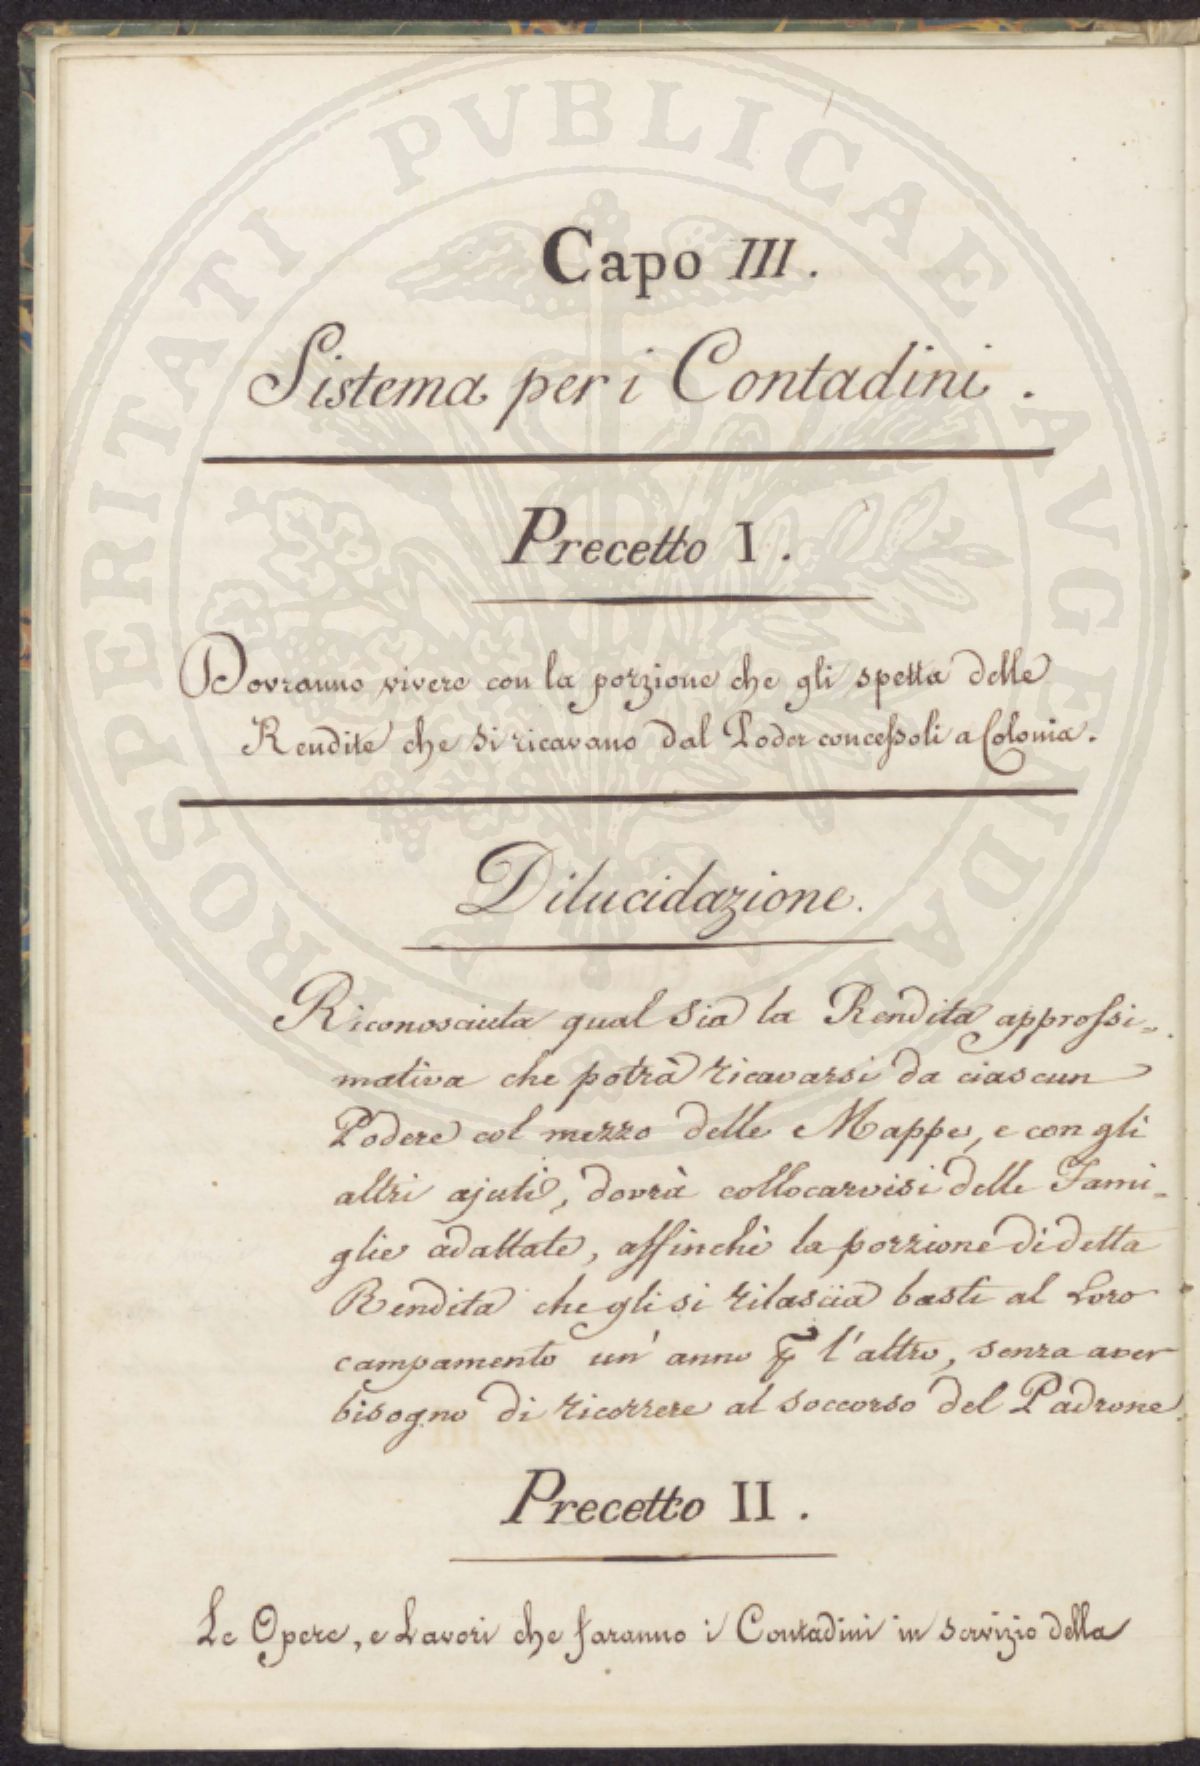 PROSPERITATI PVBLICAE AVGENDAE
Capo III.
Sistema per i Contadini.
Precetto I.
Dovranno vivere con la porzione che gli spetta delle
Rendite che si ricavano dal Poder concessoli a Colonia.
Dilucidazione.
Riconosciuta qual sia la Rendita approssi=
mativa che potrà ricavarsi da ciascun
Podere col mezzo delle Mappe, e con gli
altri ajuti, dovrà collocarvisi delle Fami=
glie adattate, affinchè la porzione di detta
Rendita che gli si rilascia basti al Loro
campamento un' anno p l'altro, senza aver
bisogno di ricorrere al soccorso del Padrone.
Precetto II.
Le Opere, e Lavori che faranno i Contadini in servizio della